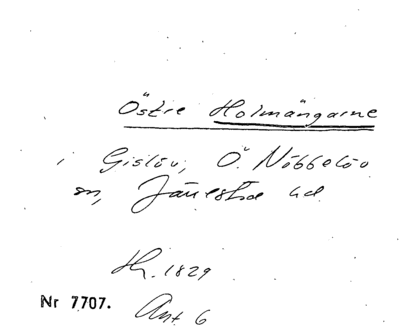 Östre Holmängarne
i Gislöv, Ö. Nöbbelöv
sn, Järrestad hd
Lh. 1829
Nr 7707. Ant 6